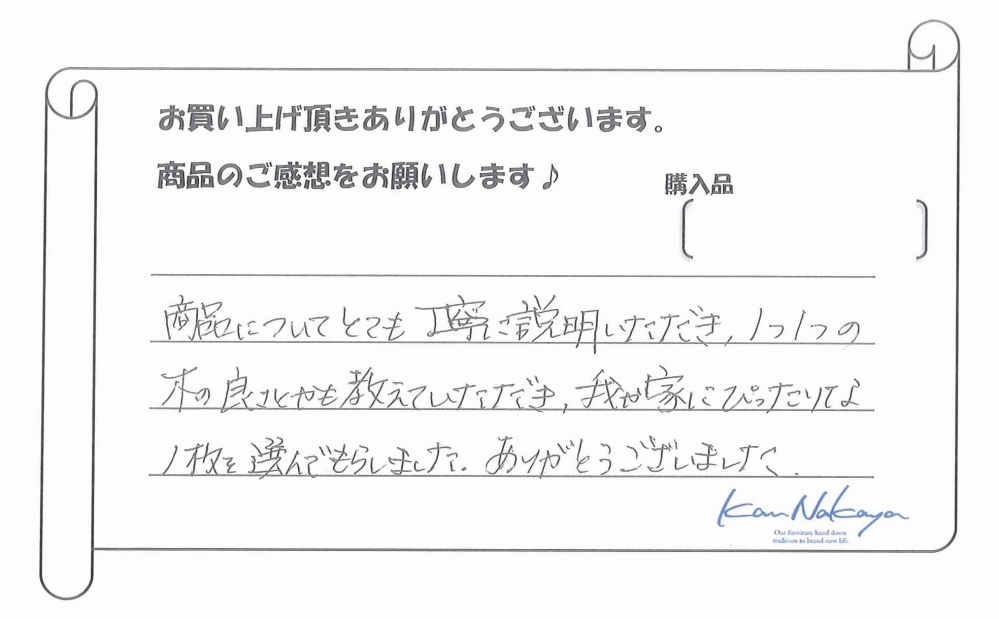 お買い上げ頂きありがとうございます。
商品のご感想をお願いします♪
購入品
商品についてとても丁寧に説明いただき、1つ1つの
木の良さとかも教えていただき、我が家にぴったりな
1枚を選んでもらいました。ありがとうございました。
Kan Nakaya
Our furniture hand down
tradition to brand-new life.